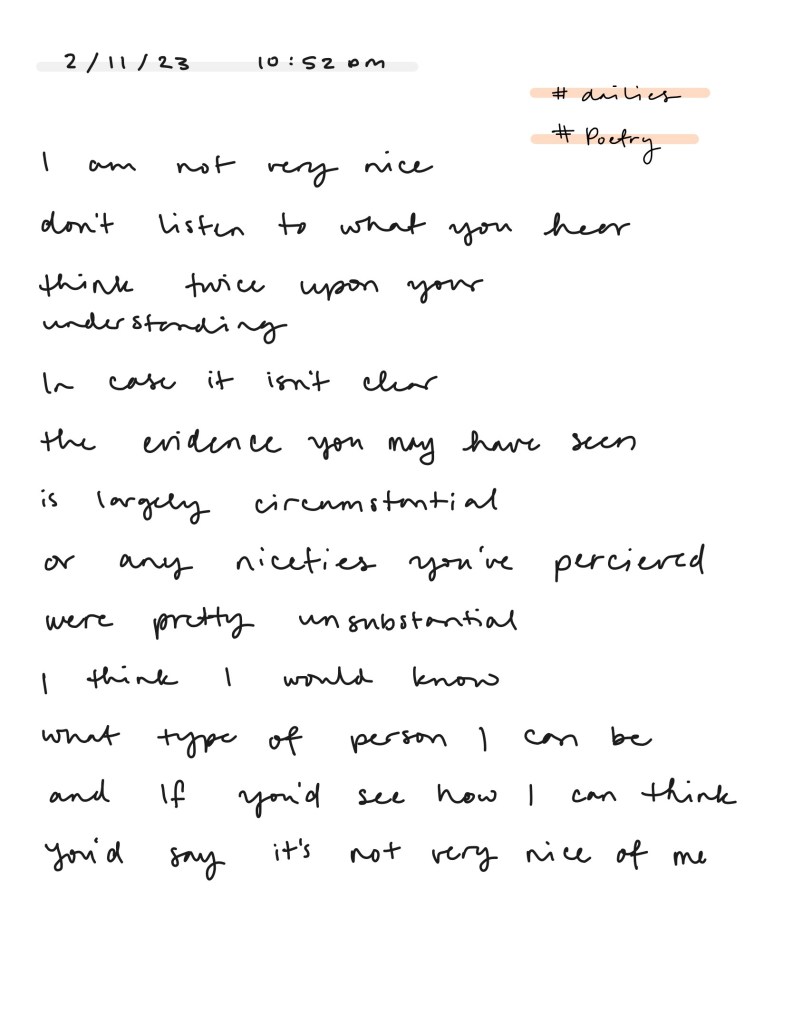 2/11/23 10:52 pm
# dailies
# Poetry
I am not very nice
don't listen to what you hear
think twice upon your
understanding
In case it isn't clear
the evidence you may have seen
is largely circumstantial
or any niceties you've percieved
were pretty unsubstantial
I think I would know
what type of person I can be
and If you'd see how I can think
you'd say it's not very nice of me